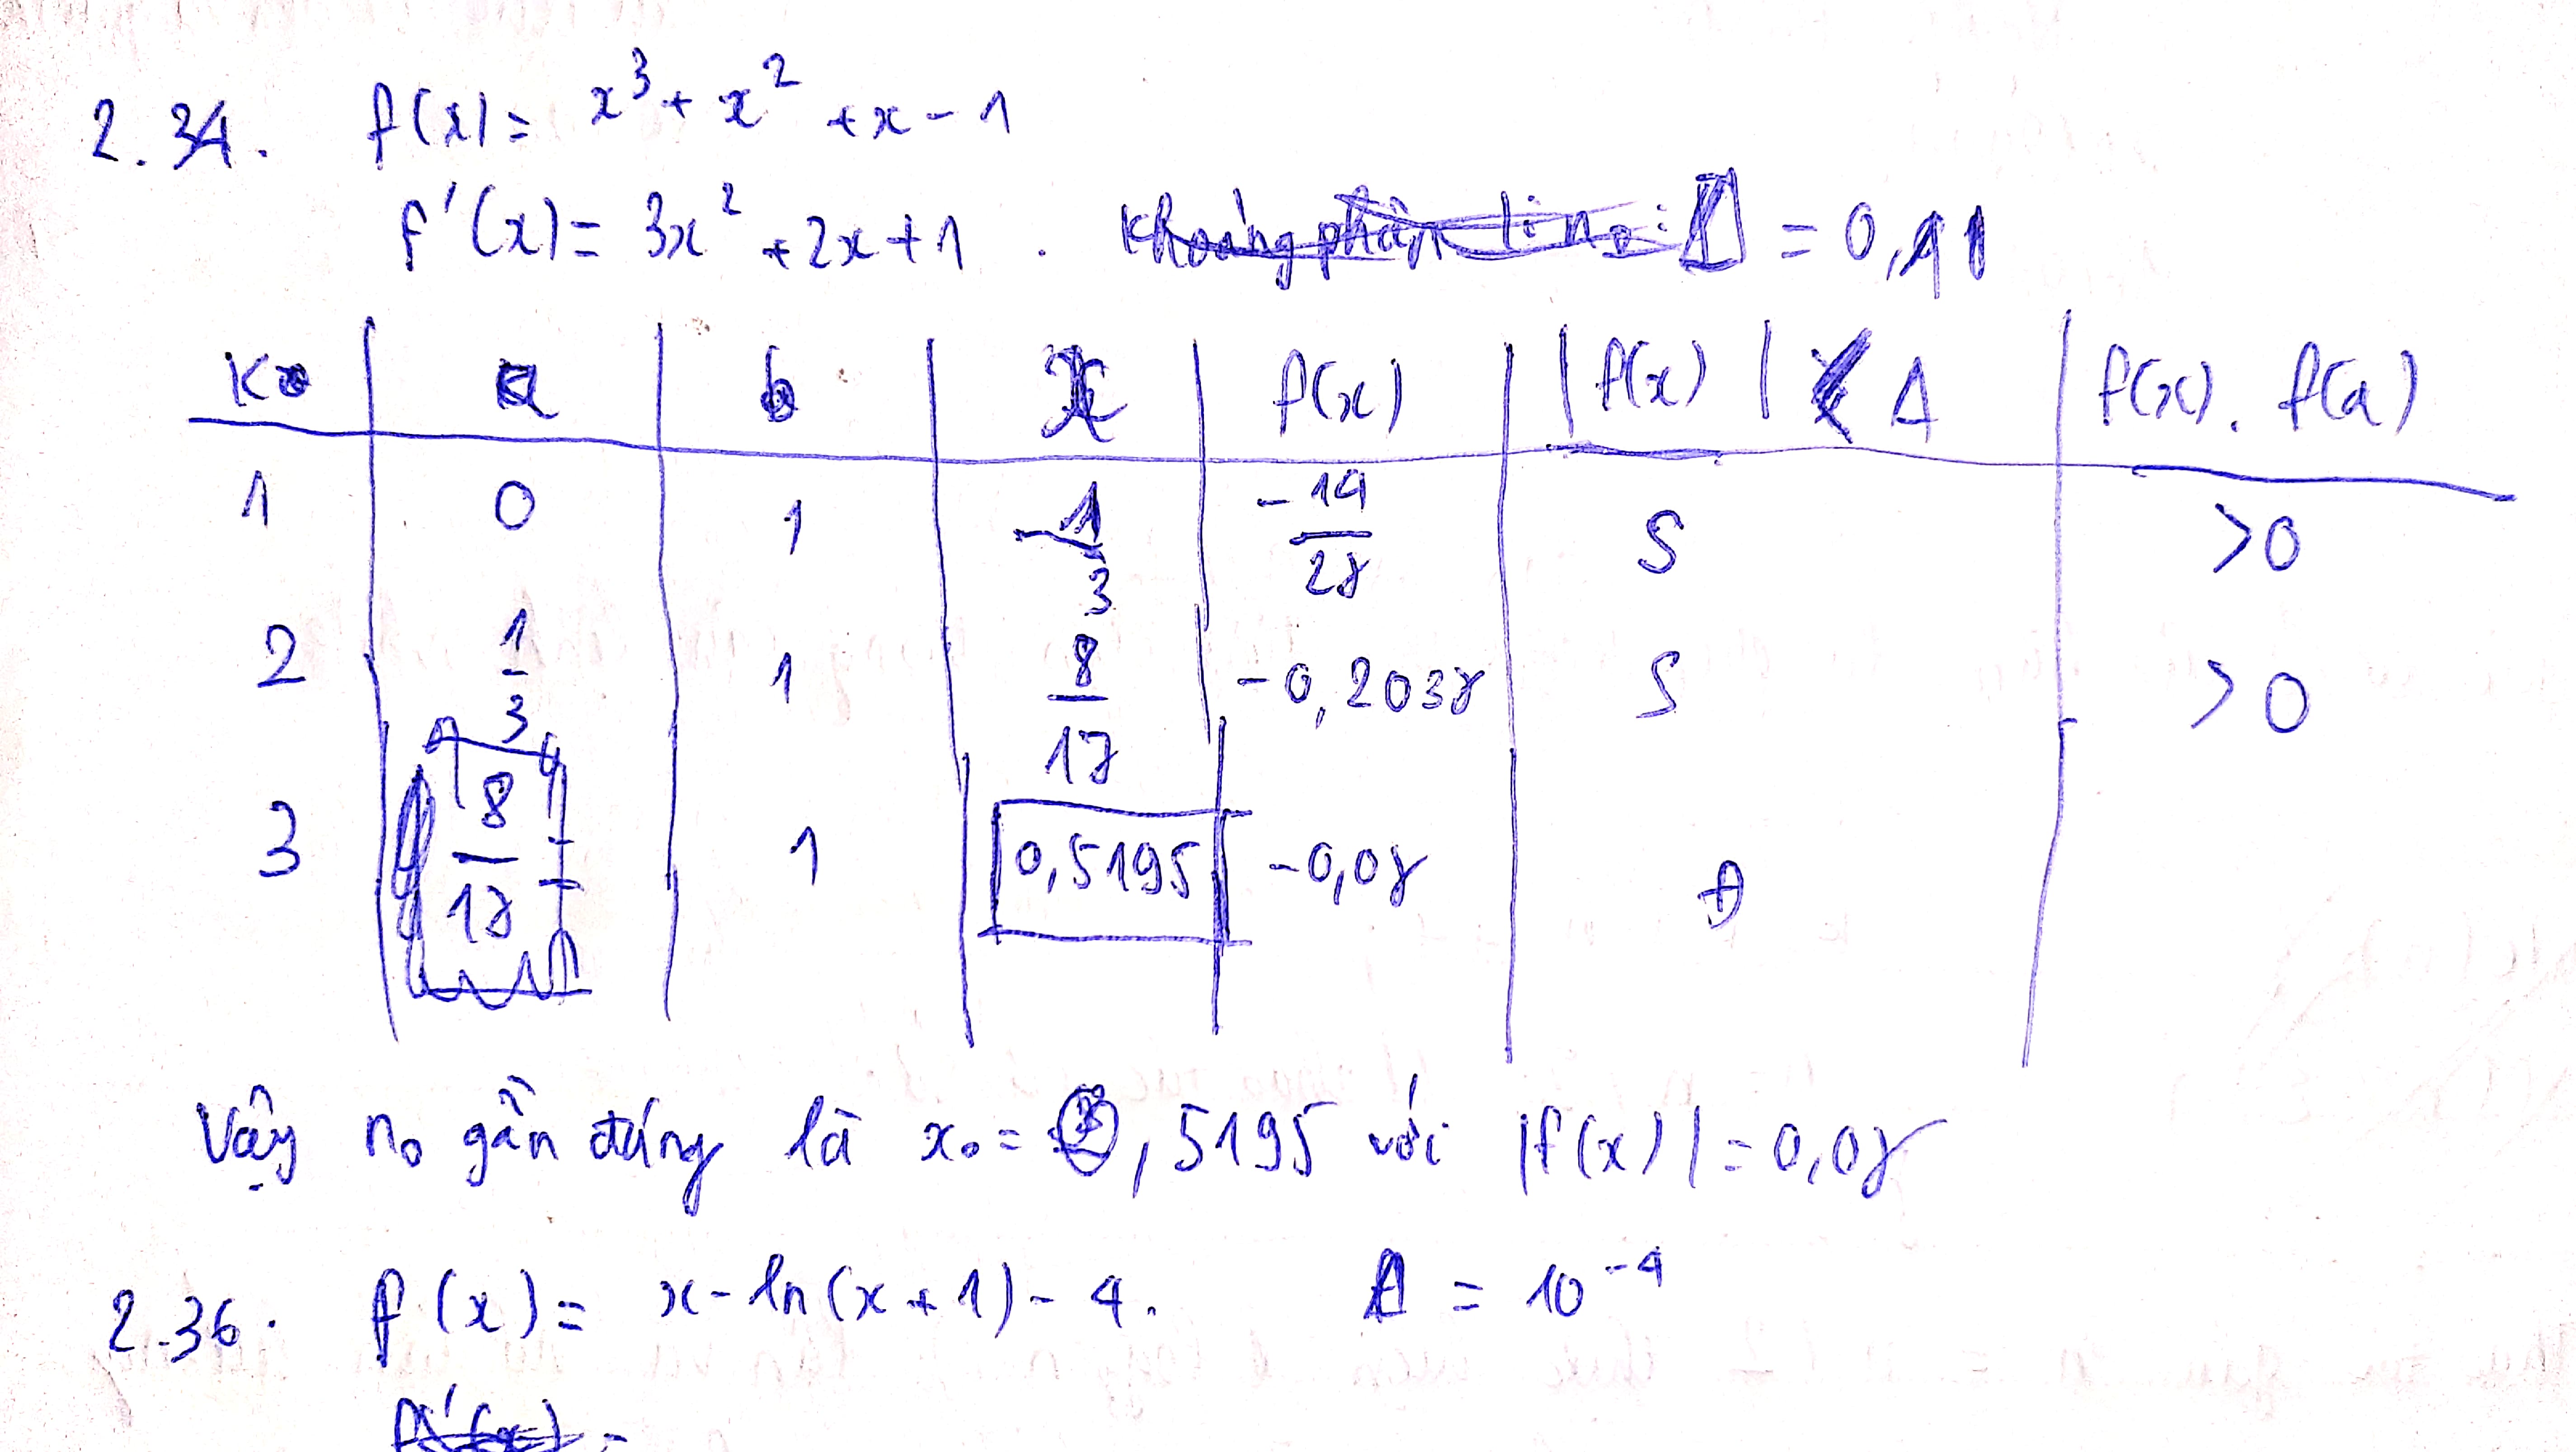 2.34. f(x) = x³ + x² + x - 1
f'(x) = 3x² + 2x + 1 . = 0,11
K a b x f(x) |f(x)| < Δ f(x). f(a)
1 0 1 1/3 -19/27 S >0
2 1/3 1 8/17 -0,2037 S >0
3 8/17 1 0,5195 -0,07 Đ
Vậy no gần đúng là x₀ = 0,5195 với |f(x)| = 0,07
2.36. f(x) = x - ln(x + 1) - 4. Δ = 10⁻⁴